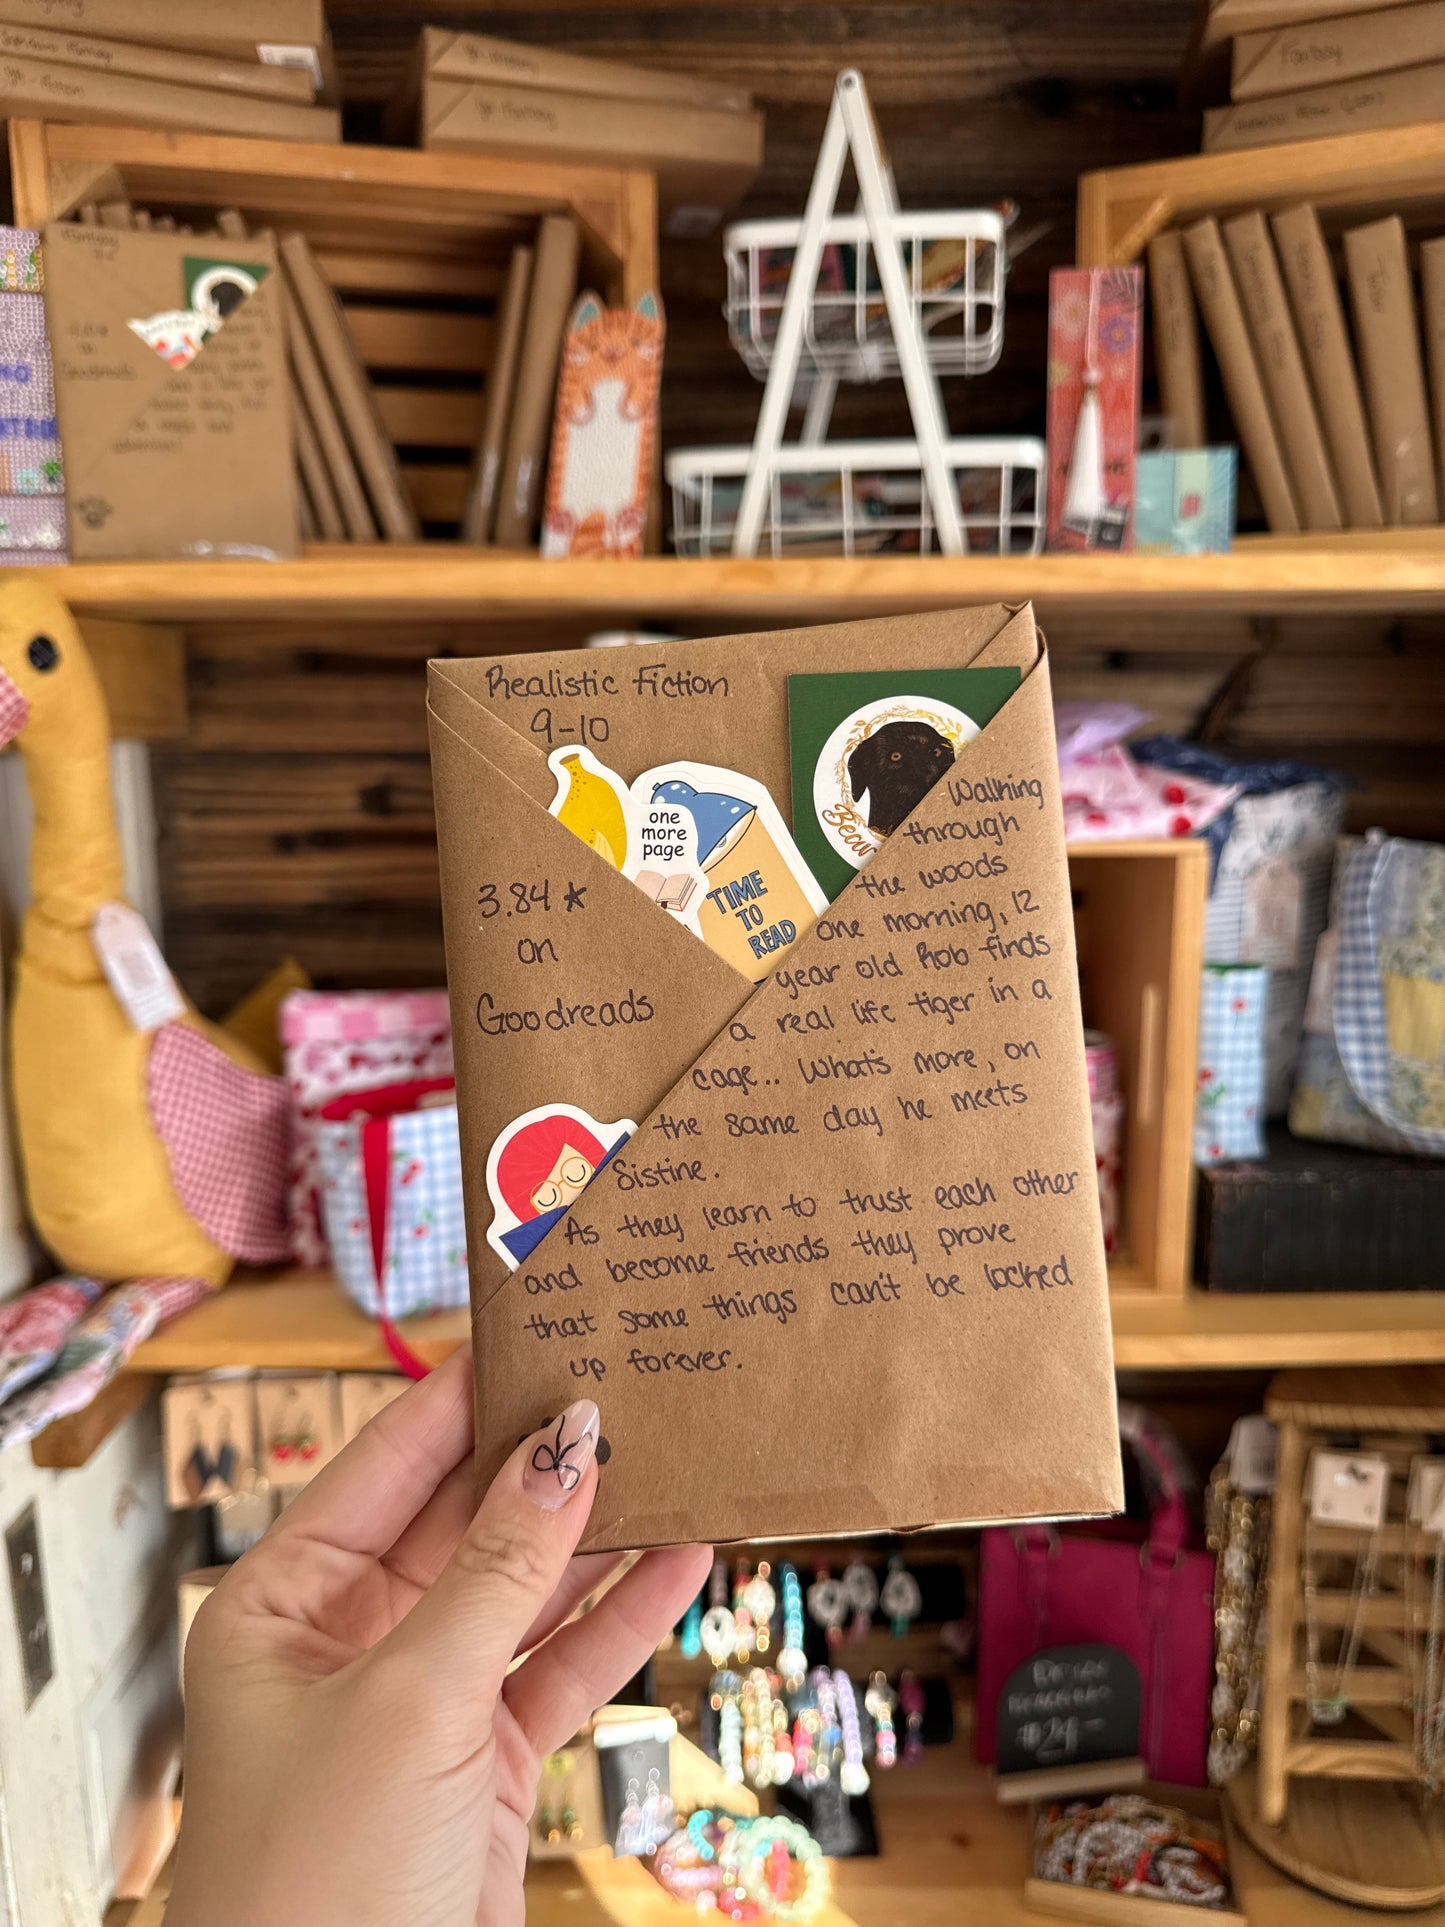 Yr - Fiction
Fantasy
Fantasy
Realistic Fiction
9-10
one
more
page
TIME
TO
READ
Bear
3.84 ★
on
Goodreads
Walking
through
the woods
one morning, 12
year old Rob finds
a real life tiger in a
cage.. What's more, on
the same day he meets
Sistine.
As they learn to trust each other
and become friends they prove
that some things can't be locked
up forever.
$24